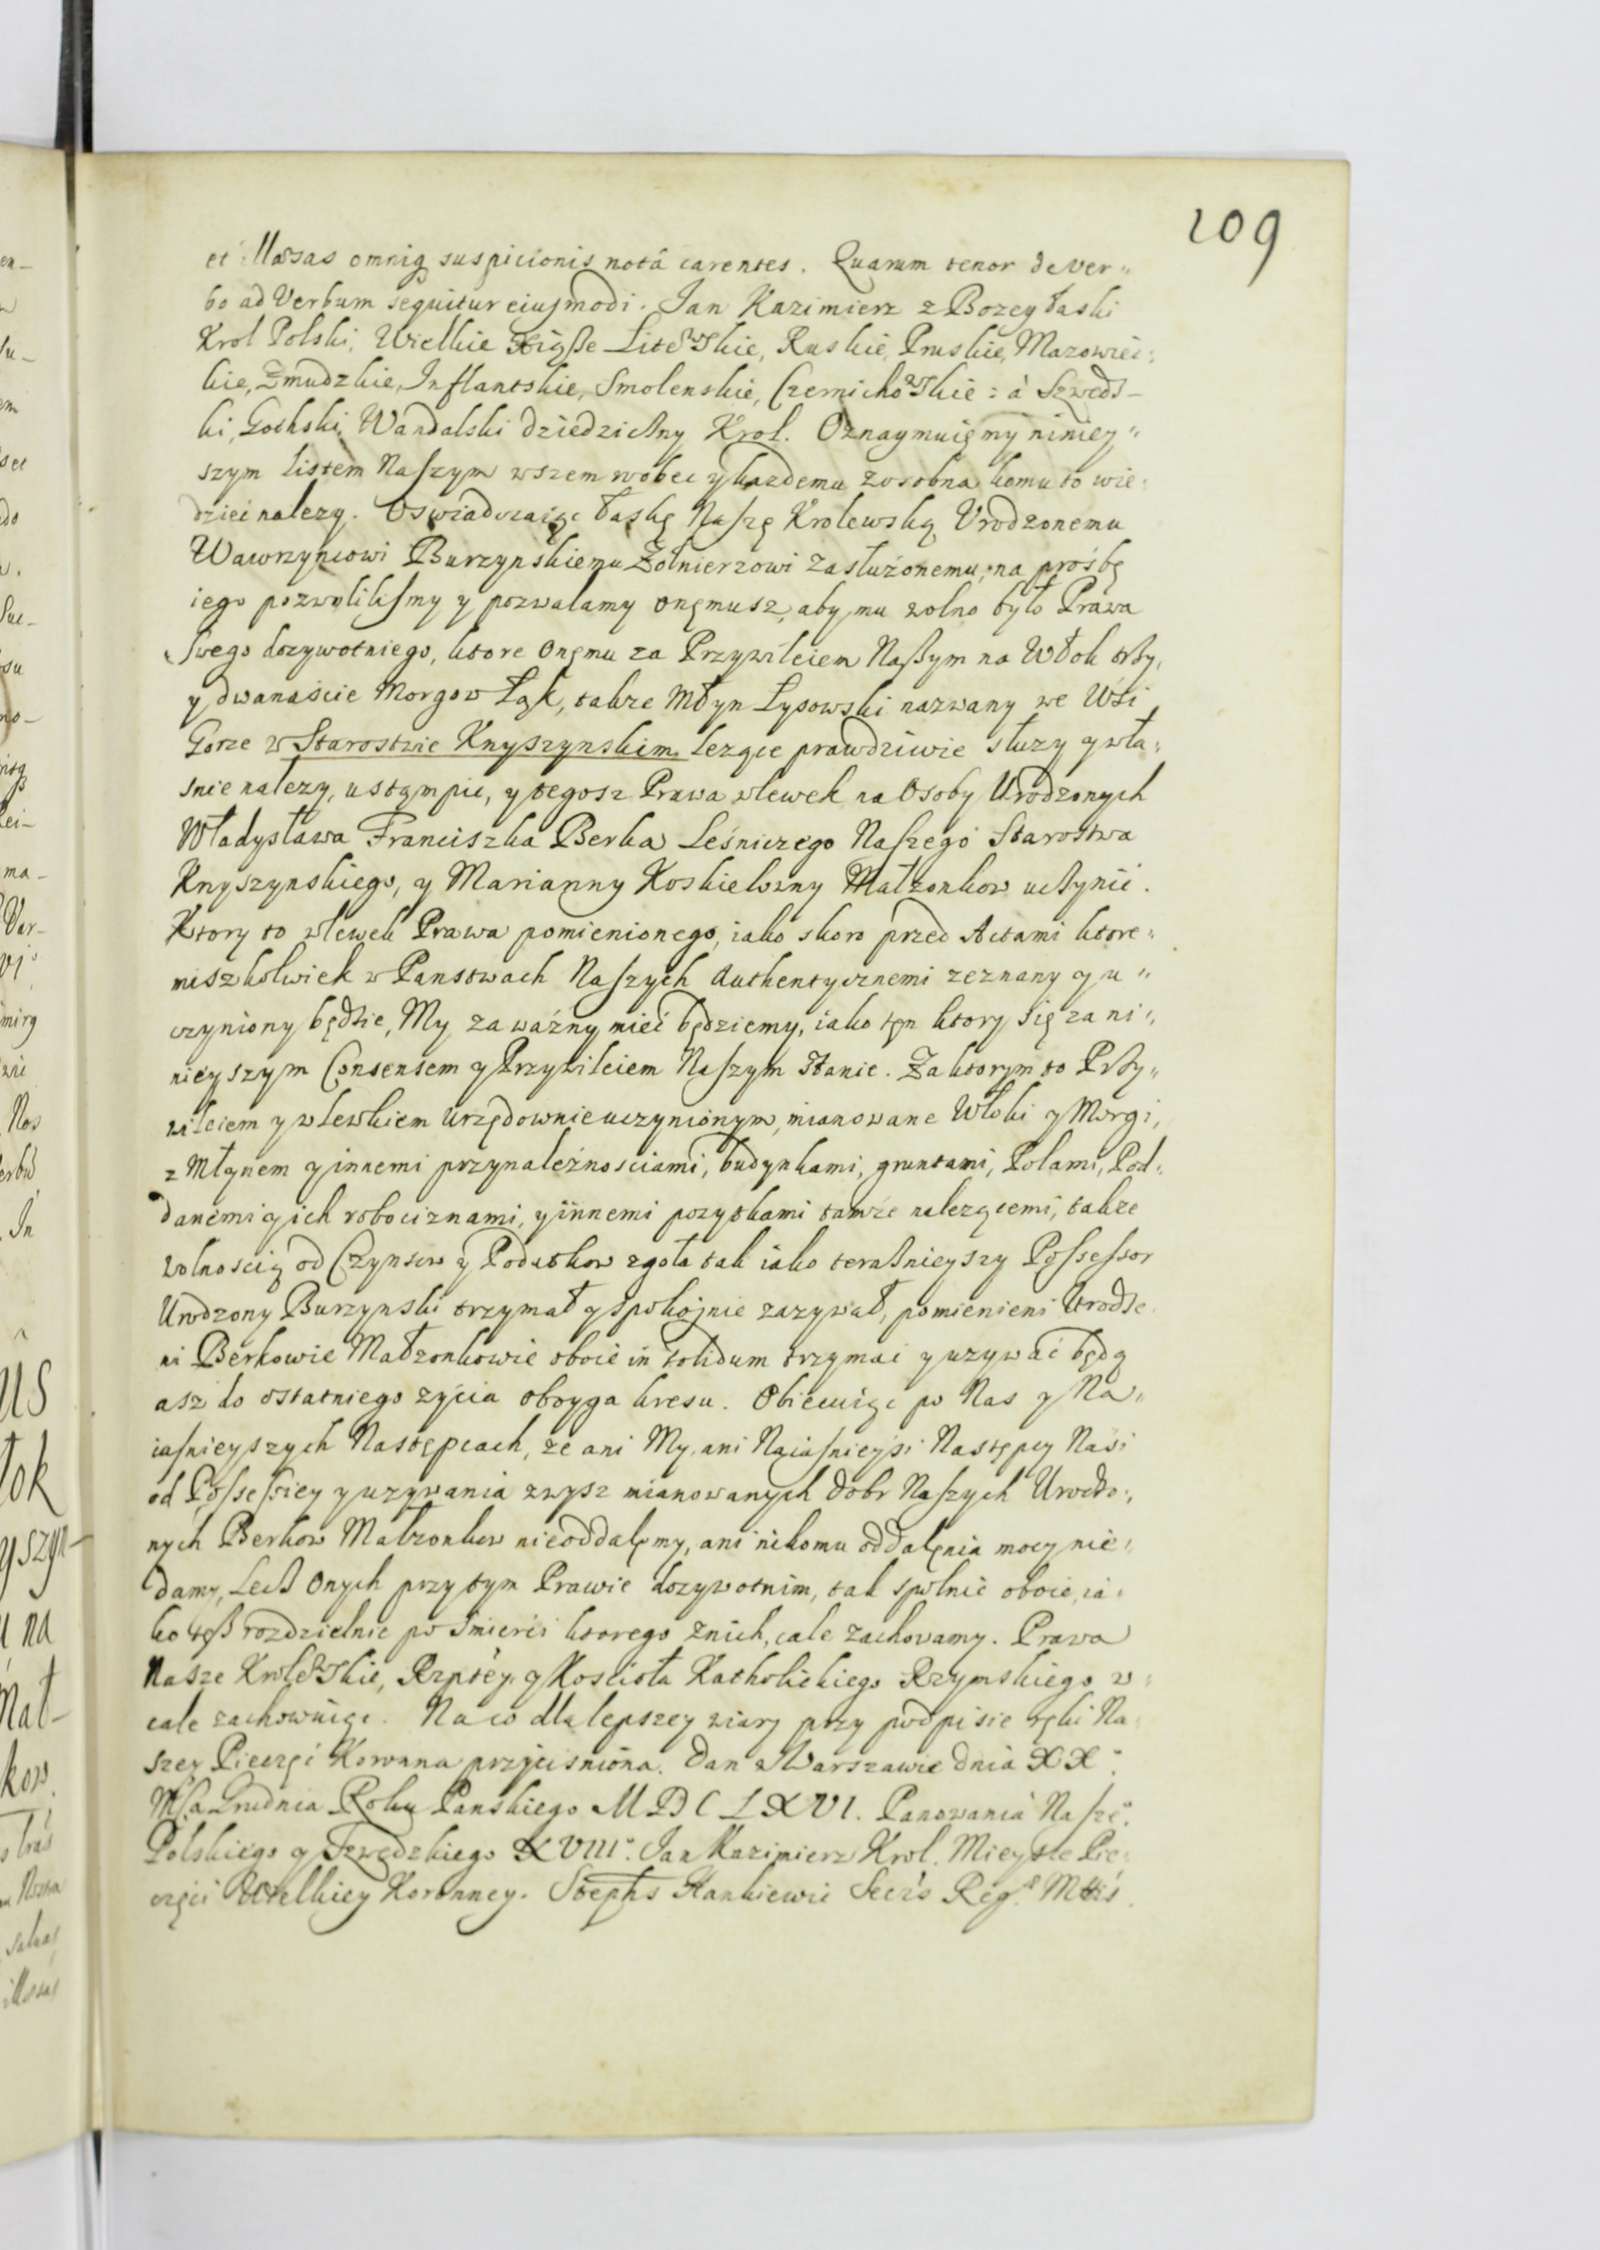 209
et illaesas omniq suspicionis notâ carentes. Quarum tenor de ver„
bo ad Verbum sequitur eiusmodi. Jan Kazimierz z Bozey łaski
Krol Polski, Wielkie Xiąße Litewskie, Ruskie, Pruskie, Mazowiec:
kie, Zmudzkie, Inflantskie, Smolenskie, Czernichowskie: á Szweds-
ki, Gothski, Wandalski dziedziczny Krol. Oznaymuięmy niniey„
szym listem Naszym wszem wobec y kazdemu zosobna komu to wie:
dziec nalezy. Oswiadczaiąc łaskę Naszę Krolewską Vrodzonemu
Wawrzyncowi Burzynskiemu Żołnierzowi zasłużonemu, na prośbę
iego pozwolilismy y pozwalamy onęmusz, aby mu wolno było Prawa
Swego dozywotniego, ktore Onęmu za Przywileiem Naßym na Włok trßy,
y dwanaście Morgow Łąk, takze Młyn Lysowski nazwany we Wśi
Gorze w Starostwie Knyszynskim lezące prawdziwie słuzy y wła:
snie nalezy, ustąmpic, y tegosz Prawa wlewek na Osoby Urodzonych
Władysława Franciszka Berka Leśniczego Naszego Starostwa
Knyszynskiego, y Marianny Koskielowny Małzonkow uczynic.
Ktory to wlewek Prawa pomienionego, iako skoro przed Actami ktore:
miszkolwiek w Panstwach Naszych Authentycznemi zeznany y u„
czyniony będzie, My za ważny mieć będziemy, iako tęn ktory się za ni:,
nieyszym Consensem y Przywileiem Naszym stanie. Za ktorym to Prßy„
wileiem y wlewkiem urzędownie uczynionym, mianowane Włoki y Morgi,
z Młynem y innemi przynależnosciami, budynkami, gruntami, Polami, Pod:
danemi y ich robociznami, y innemi pozytkami tamże nalezącemi, takze
wolnoscią od Czynszow y Podatkow zgoła tak iako teraßnieyszy Possessor
Urodzony Burzynski trzymał y spokojnie zazywał, pomienieni Urodzo
ni Berkowie Małzonkowie oboie in solidum trzymac y uzywać będą
asz do ostatniego zycia oboyga kresu. Obiecuiąc po Nas y Na„
iasnieyszych Nastęṗcach, ze ani My, ani Naiasnieyśi Następcy Naśi
od Possessiey y uzywania zwysz mianowanych dobr Naszych Urodzo:,
nych Berkow Małzonkow nieoddalęmy, ani nikomu oddalęnia mocy nie:
damy, Lecß Onych przy tym Prawie dozywotnim, tak społnie oboie, ia:
ko teß rozdzielnie po śmierci ktorego znich, cale zachowamy. Prawa
Nasze Krolewskie, Rzptéy. y Kościoła Katholickiego Rzymskiego w:
cale zachowuiąc. Na co dla lepszey wiary przy podpisie ręki Na
szey Pieczęć Koronna przyciśniona. Dan w Warszawie dnia XX.
Msca Grudnia Roku Panskiego MDCLXVI. Panowania Nasze°.
Polskiego y Szwedzkiego XVIII°. Jan Kazimierz Krol. Mieysce Pie:
częci Wielkiey Koronney. Stephs Hankiewic Secrs Reg. Mttis.